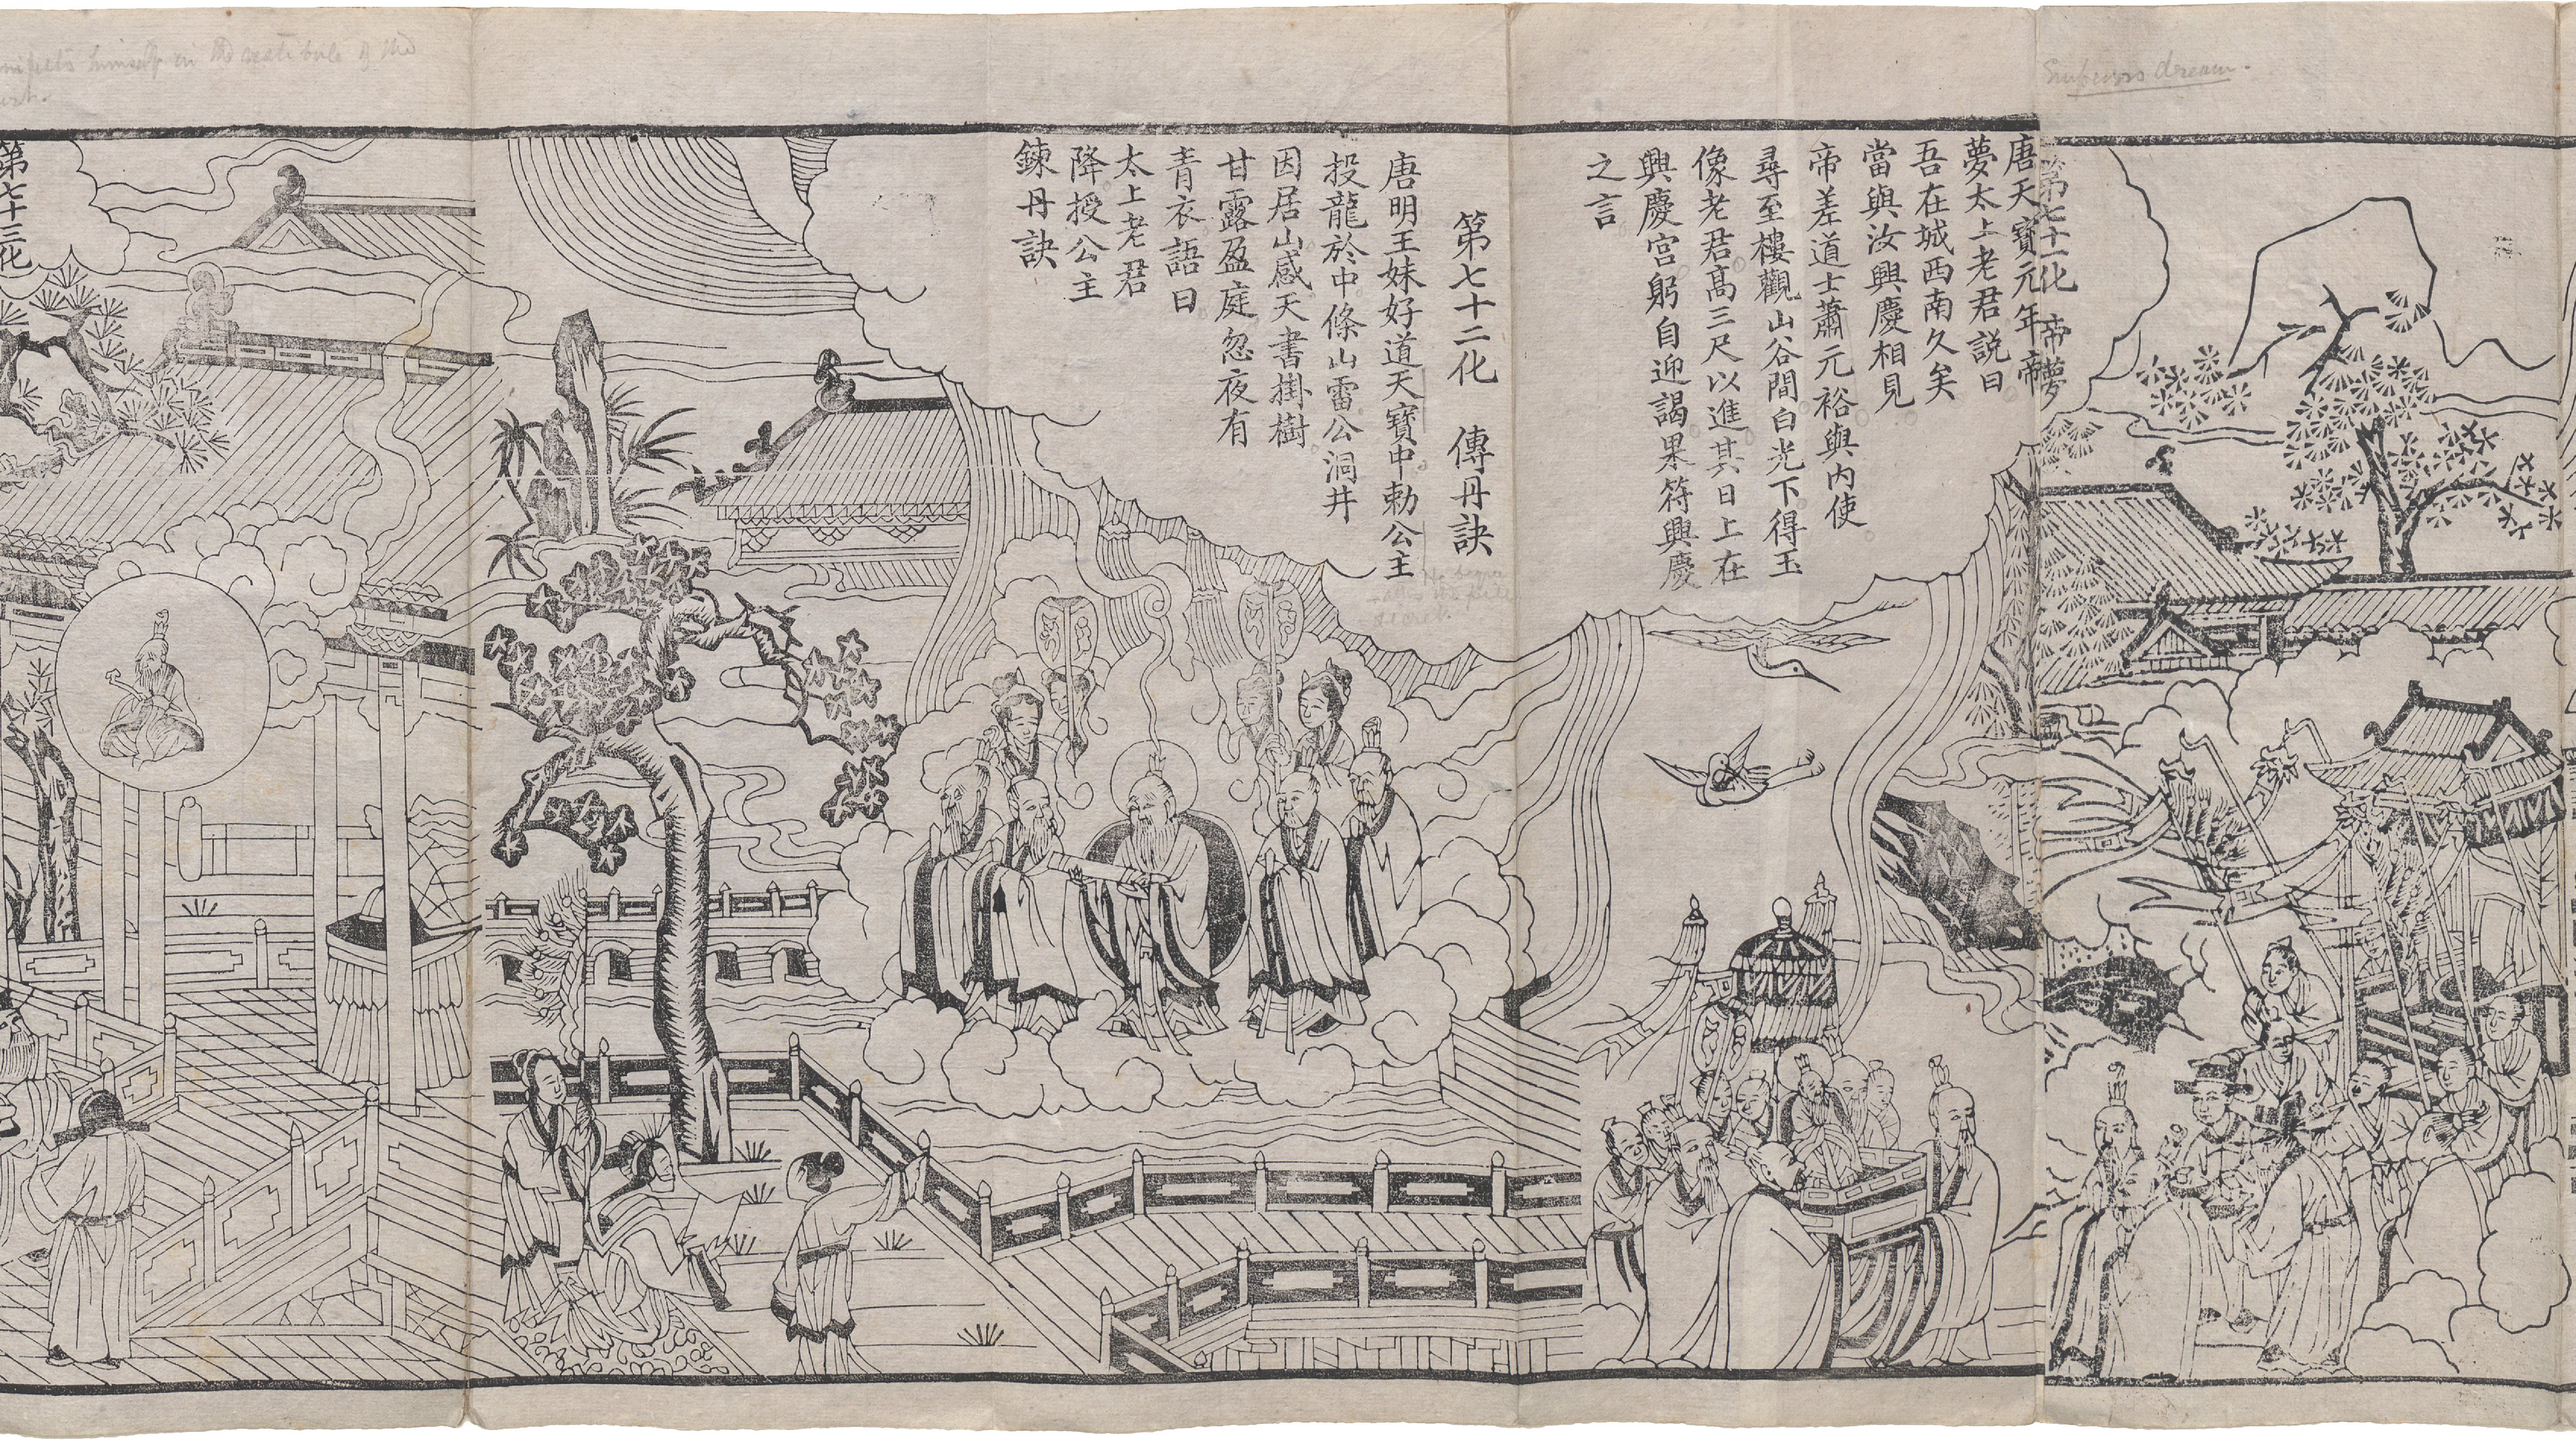 Emperors dream.
第七十一化　帝夢
唐天寶元年帝
夢太上老君説曰
吾在城西南久矣
當與汝興慶相見
帝差道士蕭元裕與内使
尋至樓觀山谷間白光下得玉
像老君高三尺以進其日上在
興慶宮躬自迎謁果符興慶
之言
第七十二化　傳丹訣
唐明王妹好道天寶中勅公主
投龍於中條山雷公洞井
因居山感天書掛樹
甘露盈庭忽夜有
青衣語曰
太上老君
降授公主
鍊丹訣
himself in the vestibule of the
第七十三化